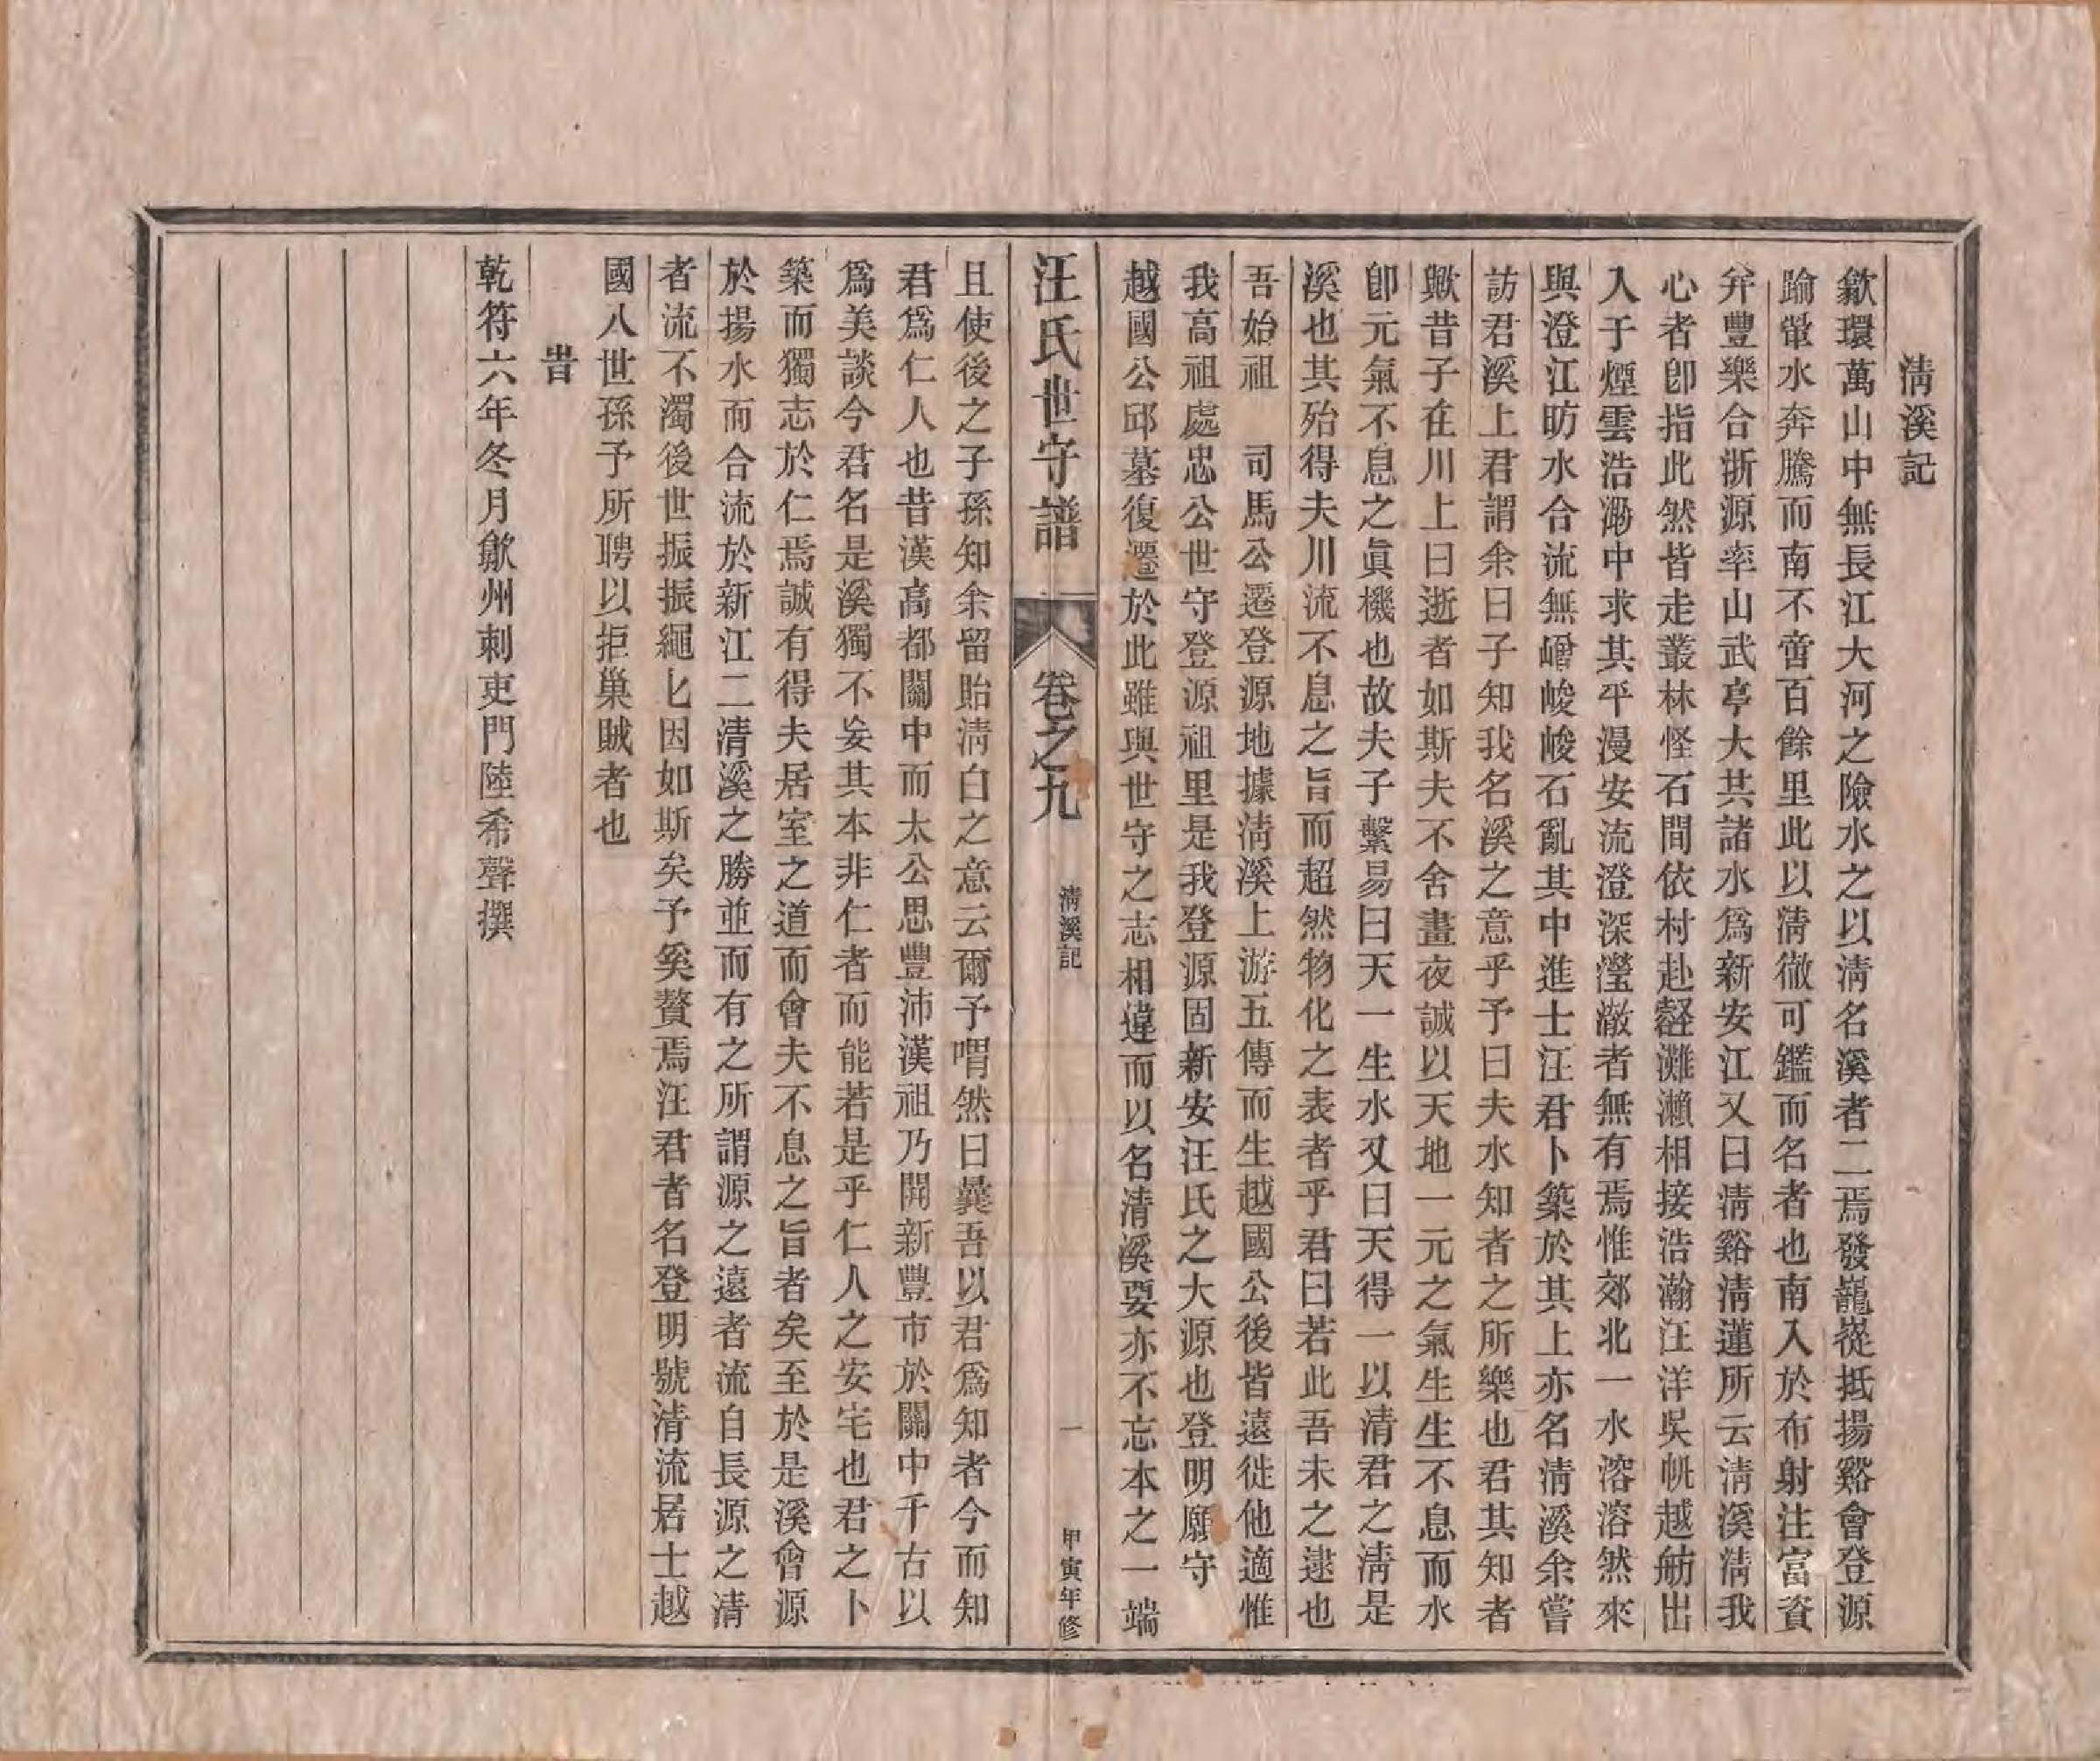 淸溪記
歙環萬山中無長江大河之險水之以淸名溪者二焉發巃嵸抵揚谿會登源
踰犖水奔騰而南不啻百餘里此以淸徹可鑑而名者也南入於布射注富資
弁豐樂合浙源率山武亭大共諸水爲新安江又曰淸谿淸蓮所云淸溪淸我
心者卽指此然皆走叢林怪石間依村赴壑灘瀨相接浩瀚汪洋吳帆越舫出
入于煙雲浩渺中求其平漫安流澄深瀅澈者無有焉惟郊北一水溶溶然來
與澄江昉水合流無嶒崚峻石亂其中進士汪君卜築於其上亦名淸溪余嘗
訪君溪上君謂余曰子知我名溪之意乎予曰夫水知者之所樂也君其知者
歟昔子在川上曰逝者如斯夫不舍晝夜誠以天地一元之氣生生不息而水
卽元氣不息之眞機也故夫子繫易曰天一生水又曰天得一以清君之淸是
溪也其殆得夫川流不息之旨而超然物化之表者乎君曰若此吾未之逮也
吾始祖　司馬公遷登源地據淸溪上游五傳而生越國公後皆遠徙他適惟
我高祖處忠公世守登源祖里是我登源固新安汪氏之大源也登明願守
越國公邱墓復遷於此雖與世守之志相違而以名清溪要亦不忘本之一端
汪氏世守譜　卷之九　淸溪記　一　甲寅年修
且使後之子孫知余留貽淸白之意云爾予喟然曰曩吾以君爲知者今而知
君爲仁人也昔漢高都關中而太公思豐沛漢祖乃開新豐市於關中千古以
爲美談今君名是溪獨不妄其本非仁者而能若是乎仁人之安宅也君之卜
築而獨志於仁焉誠有得夫居室之道而會夫不息之旨者矣至於是溪會源
於揚水而合流於新江二清溪之勝並而有之所謂源之遠者流自長源之清
者流不濁後世振振繩匕因如斯矣予奚贅焉汪君者名登明號清流居士越
國八世孫予所聘以拒巢賊者也
旹
乾符六年冬月歙州刺吏門陸希聲撰